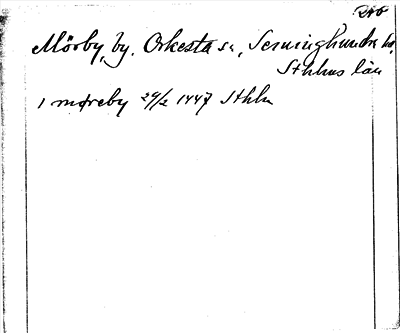 Mörby, by. Orkesta sn, Seminghundra hd,
Sthlms län
i møreby 24/2 1447 Sthlm